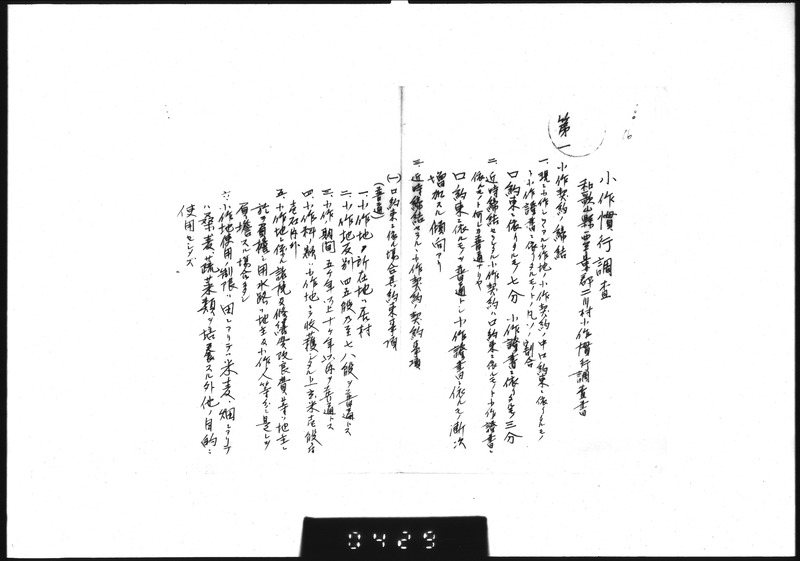 小作慣行調査
和歌山縣西牟婁郡二川村小作慣行調査書
第一 小作契約ノ締結
一、現ニ小作シアル小作地ノ小作契約ノ中口約束ニ依ルモノ
ト小作證書ニ依リタルモノトノ凡ソノ割合
口約束ニ依リタルモノ七分 小作證書ニ依ルモノ三分
二、近時締結セラルル小作契約ハ口約束ニ依ルモノト小作證書ニ
依ルモノト何レガ普通ナリヤ
口約束ニ依ルモノヲ普通トシ小作證書ニ依ルモノ漸次
増加スル傾向アリ
三、近時締結セラルル小作契約ノ契約事項
(一)口約束ニ依ル場合其約束事項
(普通)
一、小作地ノ所在地ハ居村
二、小作地反別 四五段乃至七八段ヲ普通トス
三、小作ノ期間 五ケ年以上十ケ年以内ヲ普通トス
四、小作料ノ額ハ小作地ヨリ收穫シタル玄米壱段ニ
壱石内外
五、小作地ニ係ル諸税及修繕費改良費等ハ地主ニ
於テ負擔シ用水路ハ地主及小作人等分ニ是レヲ
負擔スル場合多シ
六、小作地使用ノ制限ハ田ニアリテハ米麦、畑ニアリテ
ハ桑麦蔬菜類ヲ培養スル外他ノ目的ニ
使用セシメズ
0429